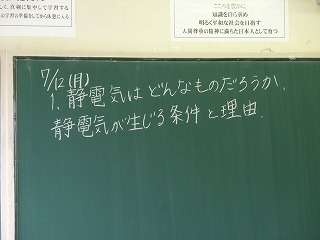 7/12(月)
1、静電気はどんなものだろうか。
静電気が生じる条件と理由。
知識を自ら求め
明るく平和な社会を目指す
人間尊重の精神に満ちた日本人として育つ